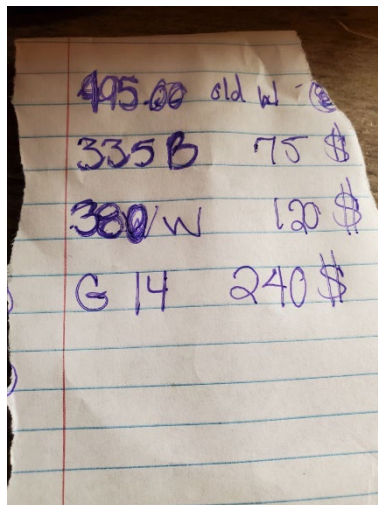 495.00 old w -
335B 75 $
380/W 120 $
G 14 240 $